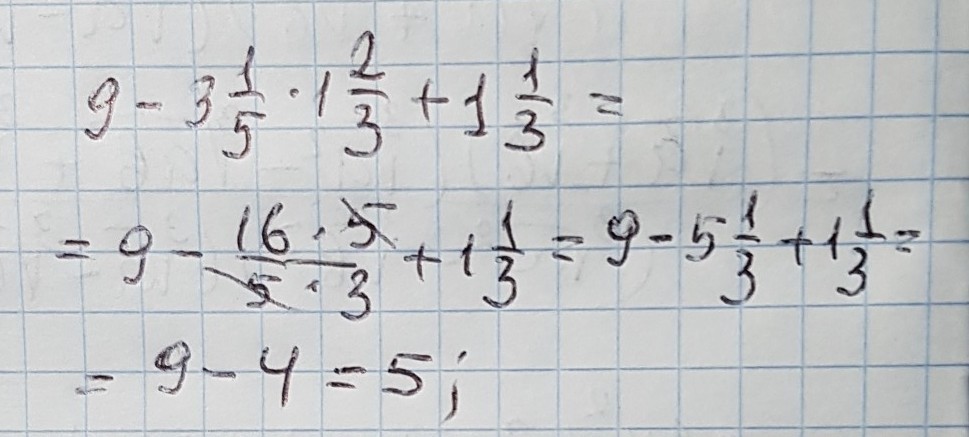 9 - 3 1/5 · 1 2/3 + 1 1/3 =
= 9 - (16 · 5)/(5 · 3) + 1 1/3 = 9 - 5 1/3 + 1 1/3 =
= 9 - 4 = 5;